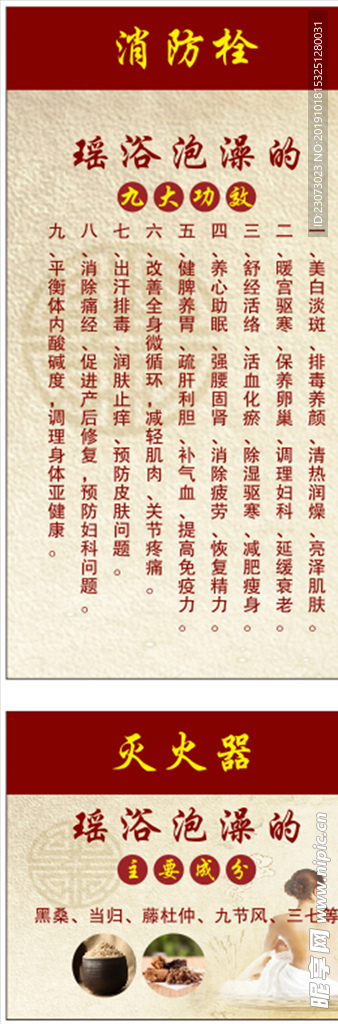 消防栓
瑶浴泡澡的
九大功效
一、美白淡斑、排毒养颜、清热润燥、亮泽肌肤。
二、暖宫驱寒、保养卵巢、调理妇科、延缓衰老。
三、舒经活络、活血化瘀、除湿驱寒、减肥瘦身。
四、养心助眠、强腰固肾、消除疲劳、恢复精力。
五、健脾养胃、疏肝利胆、补气血、提高免疫力。
六、改善全身微循环,减轻肌肉、关节疼痛。
七、出汗排毒、润肤止痒、预防皮肤问题。
八、消除痛经、促进产后修复,预防妇科问题。
九、平衡体内酸碱度,调理身体亚健康。
灭火器
瑶浴泡澡的
主要成分
黑桑、当归、藤杜仲、九节风、三七等
ID:23073023 NO:20191018153251280031
昵享网 www.nipic.cn